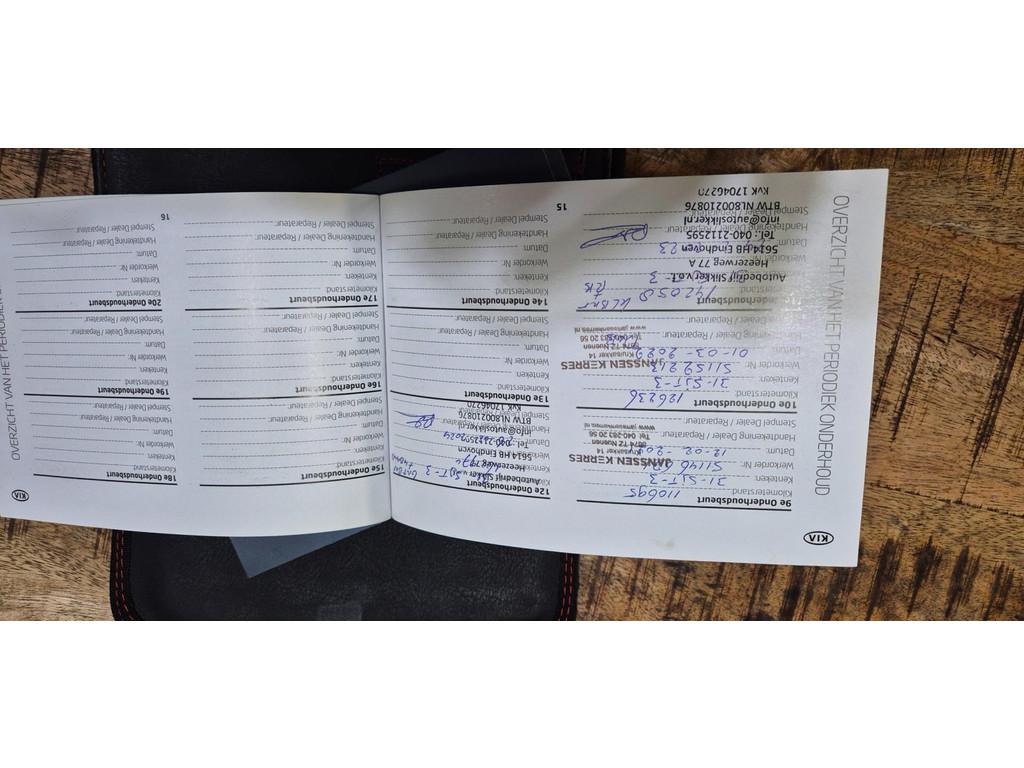 KIA
OVERZICHT VAN HET PERIODIEK ONDERHOUD
9e Onderhoudsbeurt
Kilometerstand: 110695
Kenteken: 31-SJT-3
Werkorder Nr: S1146
JANSSEN KERRES
Kruisakker 14
Datum: 12-02-
Tel. 040-283 20 56
Handtekening Dealer / Reparateur:
Stempel Dealer / Reparateur:
10e Onderhoudsbeurt
Kilometerstand: 126236
Kenteken: 31-SJT-3
Werkorder Nr: S1159213
JANSSEN KERRES
Kruisakker 14
Datum: 01-03-
5674 TZ Nuenen
Handtekening Dealer / Reparateur:
www.janssenkerres.nl
Stempel Dealer / Reparateur:
Onderhoudsbeurt
142050
Autobedrijf Slikker v.o.f.
Heezerweg 77 A
5614 HB Eindhoven
Datum: 23
Tel.: 040-2112595
info@autoslikker.nl
BTW NL800210876
KvK 17046270
12e Onderhoudsbeurt
Autobedrijf Slikker
SJT-3
Heezerweg
5614 HB Eindhoven
Tel.: 040-2112595
2024
BTW NL800210876
Stempel Dealer / Reparateur:
KvK 17046270
13e Onderhoudsbeurt
Kilometerstand:
Kenteken:
Werkorder Nr:
Datum:
Handtekening Dealer / Reparateur:
Stempel Dealer / Reparateur:
14e Onderhoudsbeurt
Kilometerstand:
Kenteken:
Werkorder Nr:
Datum:
Handtekening Dealer / Reparateur:
Stempel Dealer / Reparateur:
15
15e Onderhoudsbeurt
Kilometerstand:
Kenteken:
Werkorder Nr:
Datum:
Handtekening Dealer / Reparateur:
Stempel Dealer / Reparateur:
16e Onderhoudsbeurt
Kilometerstand:
Kenteken:
Werkorder Nr:
Datum:
Handtekening Dealer / Reparateur:
Stempel Dealer / Reparateur:
17e Onderhoudsbeurt
Kilometerstand:
Kenteken:
Werkorder Nr:
Datum:
Handtekening Dealer / Reparateur:
Stempel Dealer / Reparateur:
KIA
OVERZICHT VAN HET PERIODIEK
18e Onderhoudsbeurt
Kilometerstand:
Kenteken:
Werkorder Nr:
Datum:
Handtekening Dealer / Reparateur:
Stempel Dealer / Reparateur:
19e Onderhoudsbeurt
Kilometerstand:
Kenteken:
Werkorder Nr:
Datum:
Handtekening Dealer / Reparateur:
Stempel Dealer / Reparateur:
20e Onderhoudsbeurt
Kilometerstand:
Kenteken:
Werkorder Nr:
Datum:
Handtekening Dealer / Reparateur:
Stempel Dealer / Reparateur:
16